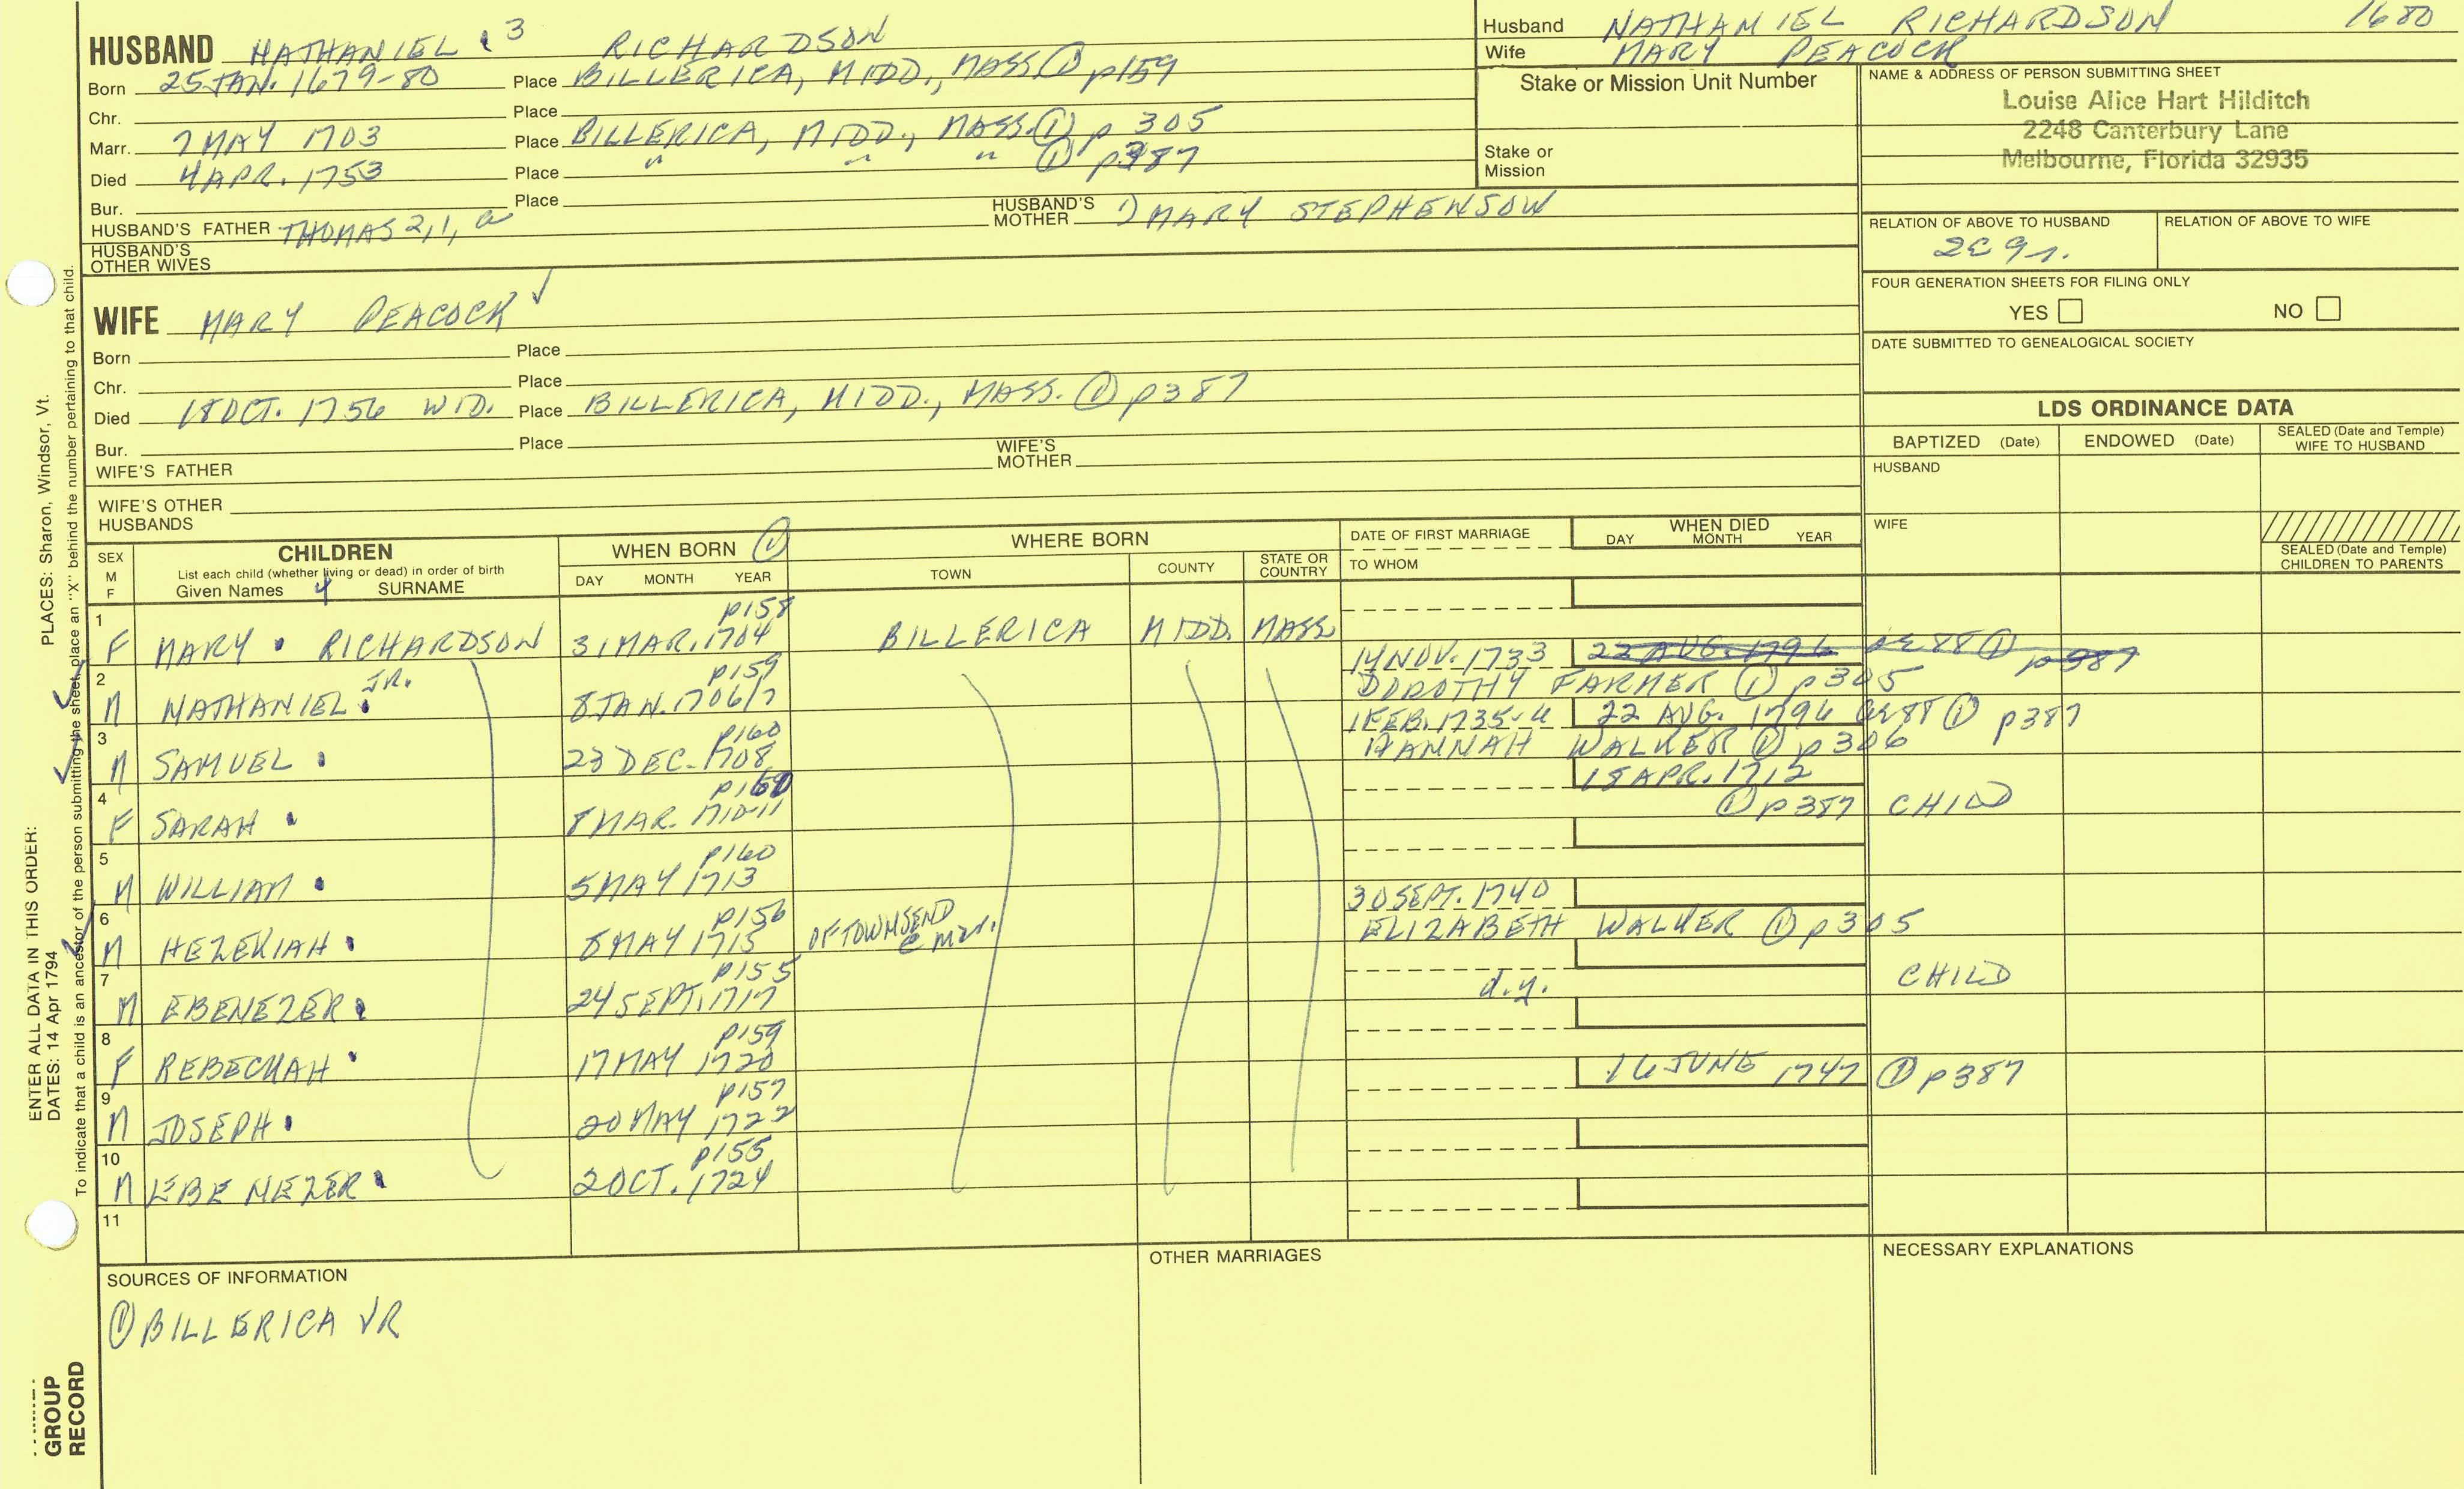 HUSBAND NATHANIEL 3 RICHARDSON
Born 25 JAN. 1679-80 Place BILLERICA, MIDD., MASS. ① p159
Chr. Place
Marr. 7 MAY 1703 Place BILLERICA, MIDD., MASS. ① p 305
Died 4 APR. 1753 Place " " " ① p387
Bur. Place
HUSBAND'S FATHER THOMAS 2, 1, a HUSBAND'S MOTHER 1) MARY STEPHENSON
HUSBAND'S OTHER WIVES
Husband NATHANIEL RICHARDSON 1680
Wife MARY PEACOCK
Stake or Mission Unit Number
Stake or Mission
NAME & ADDRESS OF PERSON SUBMITTING SHEET
Louise Alice Hart Hilditch
2248 Canterbury Lane
Melbourne, Florida 32935
RELATION OF ABOVE TO HUSBAND RELATION OF ABOVE TO WIFE
FOUR GENERATION SHEETS FOR FILING ONLY
YES NO
DATE SUBMITTED TO GENEALOGICAL SOCIETY
WIFE MARY PEACOCK ✓
Born Place
Chr. Place
Died 18 OCT. 1756 WID. Place BILLERICA, MIDD., MASS. ① p387
Bur. Place
WIFE'S FATHER WIFE'S MOTHER
WIFE'S OTHER HUSBANDS
LDS ORDINANCE DATA
BAPTIZED (Date) ENDOWED (Date) SEALED (Date and Temple) WIFE TO HUSBAND
HUSBAND
WIFE
SEALED (Date and Temple) CHILDREN TO PARENTS
SEX M F
CHILDREN
List each child (whether living or dead) in order of birth
Given Names SURNAME
WHEN BORN ①
DAY MONTH YEAR
WHERE BORN
TOWN COUNTY STATE OR COUNTRY
DATE OF FIRST MARRIAGE
TO WHOM
WHEN DIED
DAY MONTH YEAR
1 F MARY RICHARDSON p158 31 MAR. 1704 BILLERICA MIDD. MASS.
2 M NATHANIEL JR. p159 8 JAN. 1706/7 14 NOV. 1733 22 AUG. 1796 ① p387
DOROTHY FARMER ① p305
3 M SAMUEL p160 23 DEC. 1708 1 FEB. 1735-6 22 AUG. 1796 ae 88 ① p387
HANNAH WALKER ① p306
4 F SARAH p160 8 MAR. 1710-11 15 APR. 1712
① p387 CHILD
5 M WILLIAM p160 5 MAY 1713
6 M HEZEKIAH p156 8 MAY 1715 OF TOWNSEND @ mar. 30 SEPT. 1740
ELIZABETH WALKER ① p305
7 M EBENEZER p155 24 SEPT. 1717 d.y. CHILD
8 F REBECKAH p159 17 MAY 1720
9 M JOSEPH p157 20 MAY 1722 16 JUNE 1747 ① p387
10 M EBENEZER p155 2 OCT. 1724
11
SOURCES OF INFORMATION
① BILLERICA VR
OTHER MARRIAGES
NECESSARY EXPLANATIONS
ENTER ALL DATA IN THIS ORDER:
DATES: 14 Apr 1794 PLACES: Sharon, Windsor, Vt.
To indicate that a child is an ancestor of the person submitting the sheet, place an "X" behind the number pertaining to that child.
GROUP
RECORD